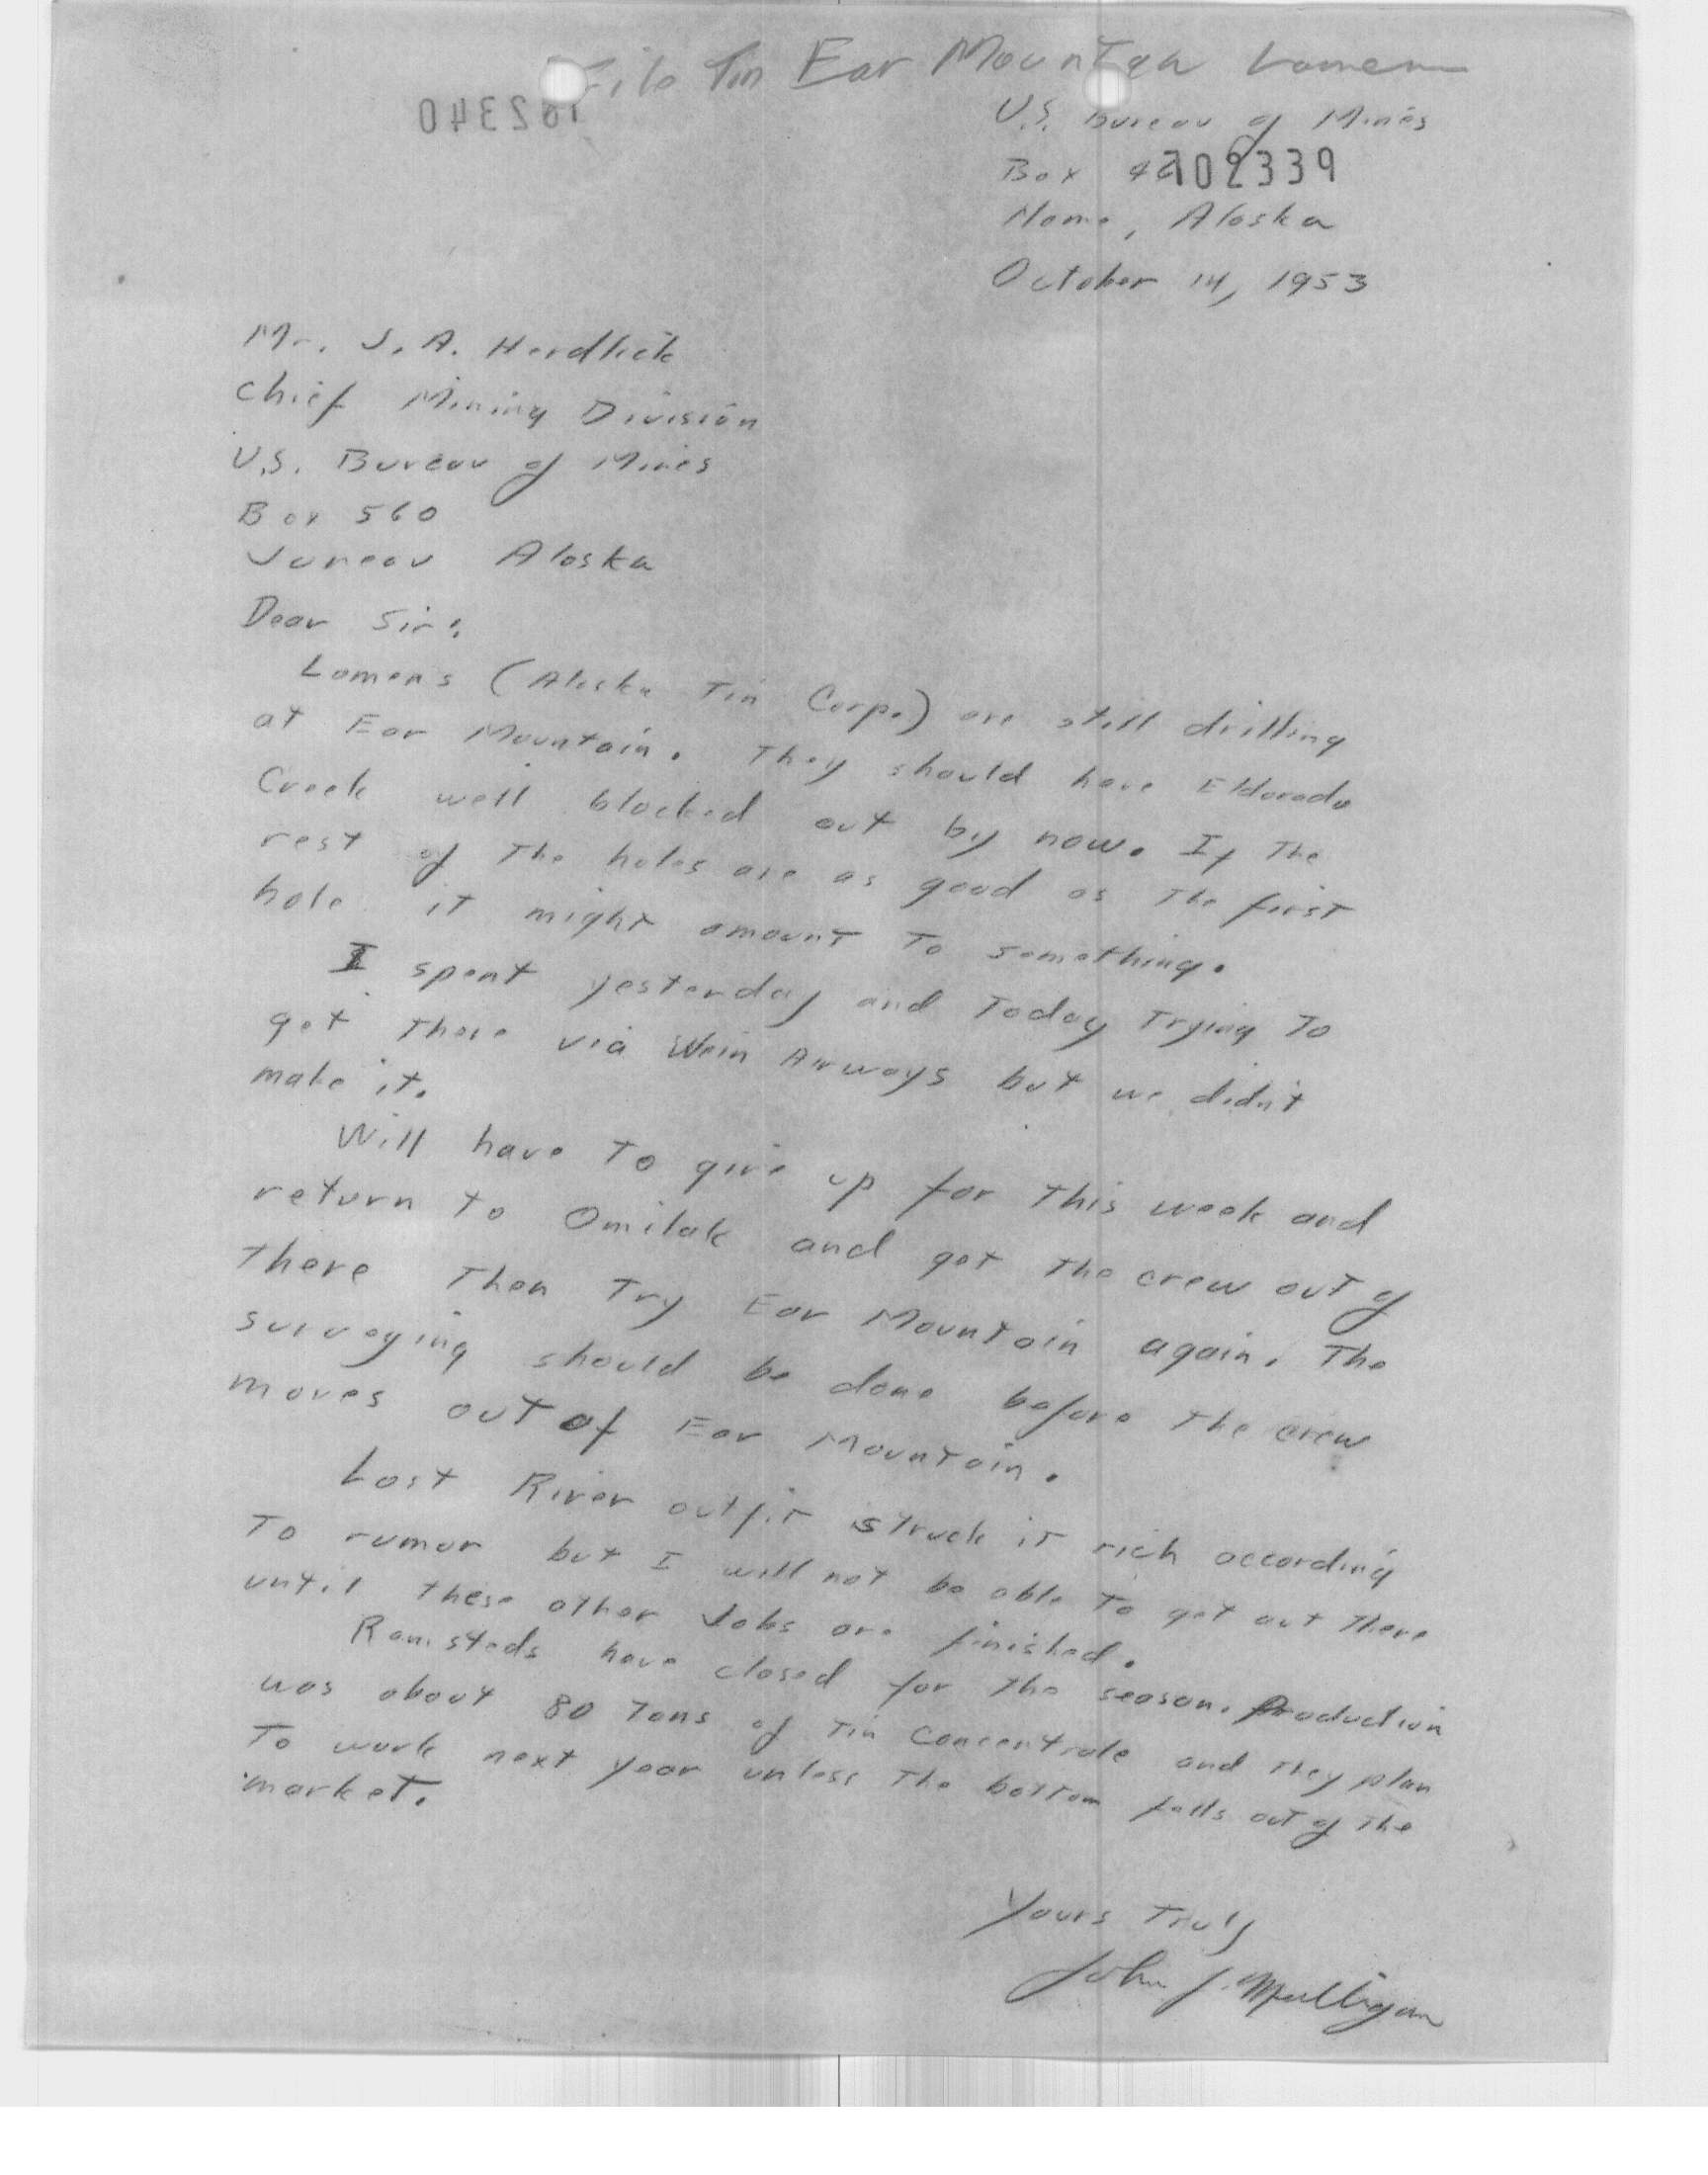 File Tin Ear Mountain Lomen
162340
U.S. Bureau of Mines
Box 102339
Nome, Alaska
October 14, 1953
Mr. J. A. Herdlick
Chief Mining Division
U.S. Bureau of Mines
Box 560
Juneau Alaska
Dear Sir:
Lomens (Alaska Tin Corp.) are still drilling
at Ear Mountain. They should have Eldorado
Creek well blocked out by now. If the
rest of the holes are as good as the first
hole it might amount to something.
I spent yesterday and today trying to
get there via Wein Airways but we didn't
make it.
Will have to give up for this week and
return to Omilak and get the crew out of
there then try Ear Mountain again. The
surveying should be done before the crew
moves out of Ear Mountain.
Lost River outfit struck it rich according
to rumor but I will not be able to get out there
until these other Jobs are finished.
Ramsteds have closed for the season. Production
was about 80 tons of tin concentrate and they plan
to work next year unless the bottom falls out of the
market.
Yours Truly
John J. Mulligan